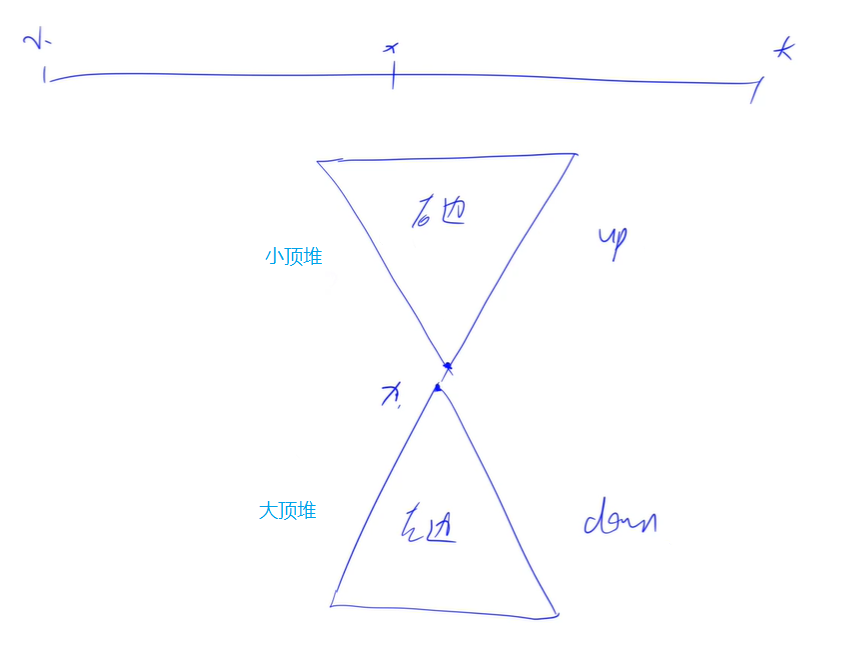 x
k
右边
小顶堆
up
x.
大顶堆
左边
down